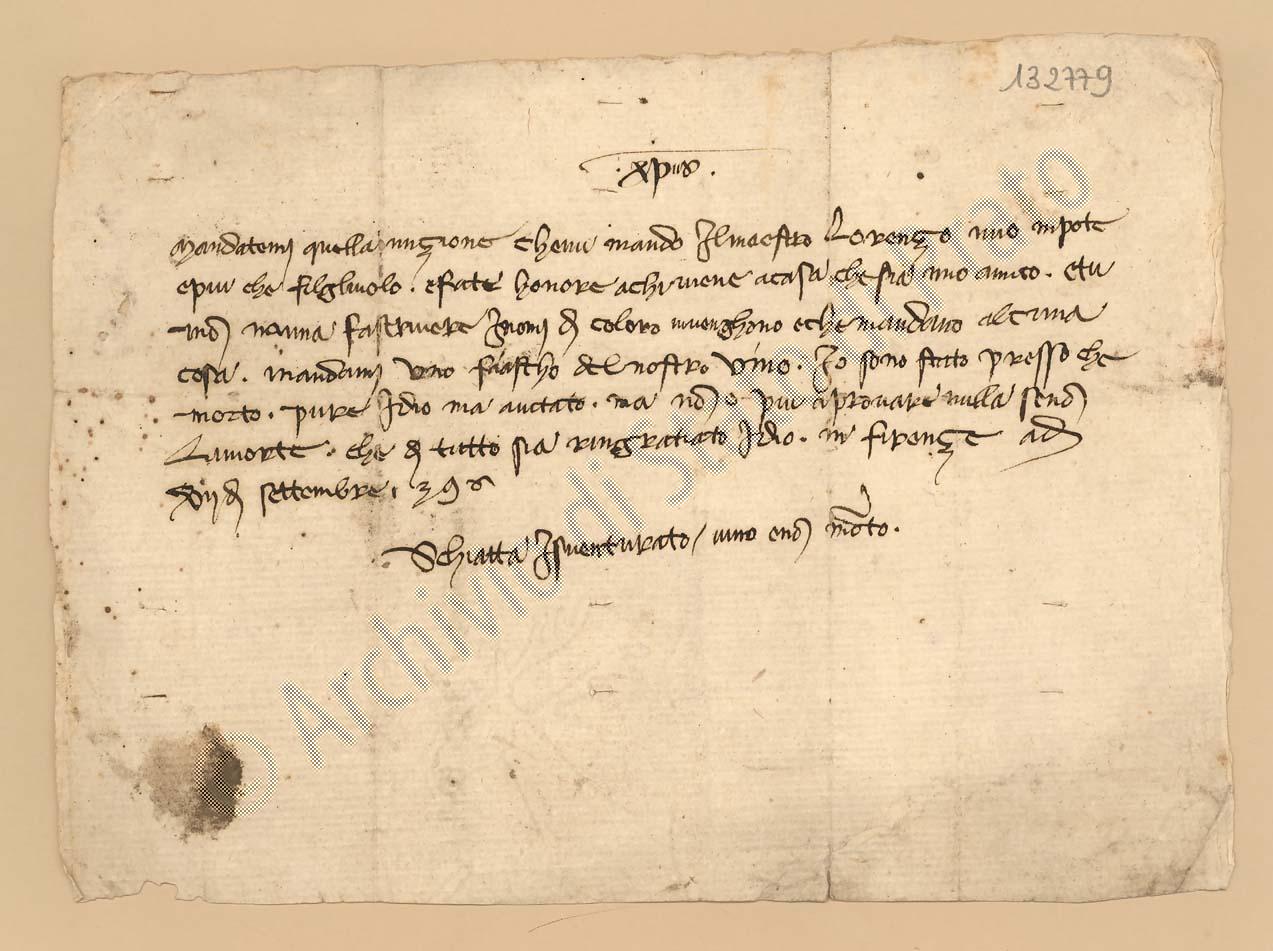 132779
· xpus ·
Mandatemi quella unzione chevvi mando Ilmaestro Lorenzo mio nipote
epiu che filgliuolo . efate honore achiviene acasa chesia mio amico . etu
mona fascrivere Inomi di coloro vivenghono eche mandano alcuna
cosa . mandami uno fiascho del nostro vino . Io sono stato presso che
morto . pure Idio ma aiutato . ma no o piu aprovare nulla seno
Lamorte . che di tutto sia ringratiato Idio . in firenze adi
xii di settembre . 398
Schiatta Isventurato / vivo eno morto .
© Archivio di Stato di Prato